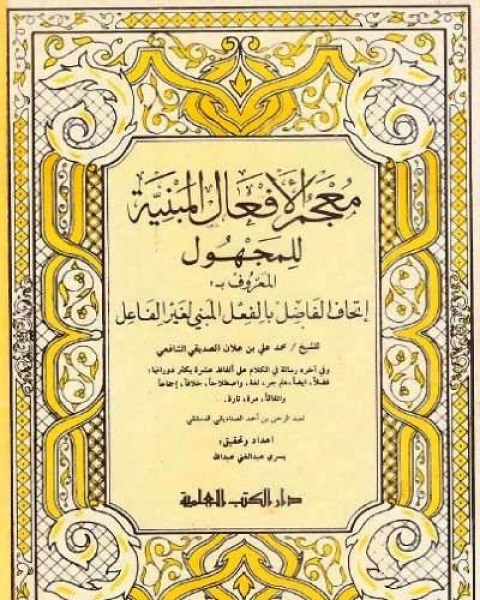 معجم الأفعال المبنية
للمجهول
المعروف بـ:
إتحاف الفاضل بالفعل المبني لغير الفاعل
للشيخ / محمد علي بن علان الصديقي الشافعي
وفي آخره رسالة في الكلام على ألفاظ عشرة يكثر دورانها:
فضلاً، أيضاً، هلم جر، لغة، واصطلاحاً، خلافاً، إجماعاً
واتفاقاً، مرة، تارة.
لعبد الرحمن بن أحمد الصناديقي الدمشقي
إعداد وتحقيق:
يسري عبدالغني عبدالله
دار الكتب العلمية